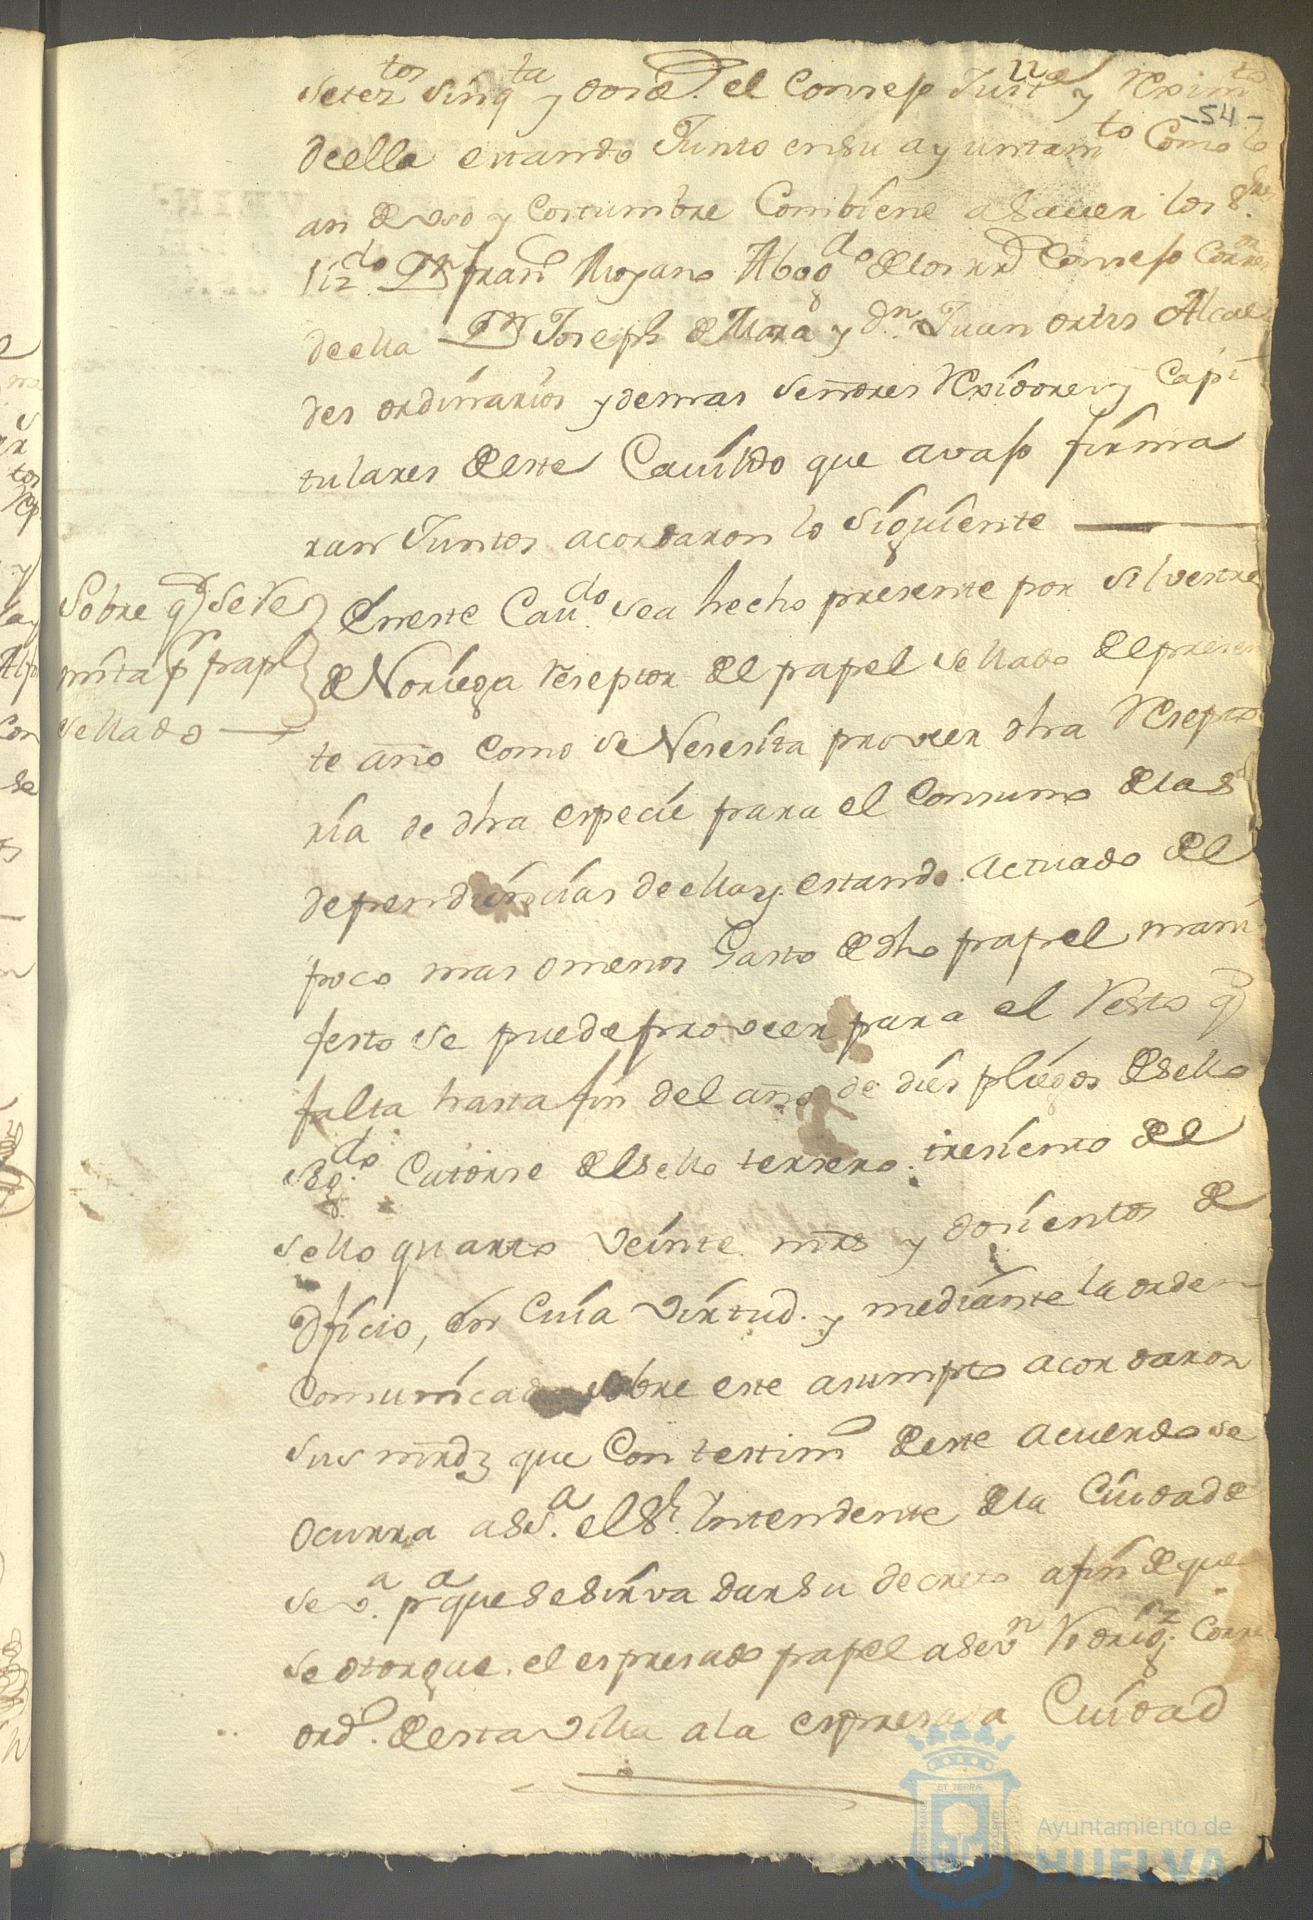 22
-54-
setez.tos sinq.ta y dos a. el Consejo Just.a y Rexim.to
de ella estando Junto en su ayuntam.to Como lo
an de uso y Costumbre Combiene a sauer los S.res
liz.do Dn fran.co Moyano Abog.do de los rr.s Consejos Corr.or
de ella Dn Joseph de Mora y Dn. Juan ortis Alcal
des ordinarios y demas señores Rexidores y Capi
tulares de este Cauildo que avajo firma
ran Juntos acordaron lo siguiente
Sobre q.e se Re
mita p.r papl
sellado
En este Cau.do sea hecho presente por silvestre
de Noriega reseptor del papel sellado del presen
te año como se Nesesita proveer dha Resepto
ria de dha especie para el Consumo de las
dependiensias de ella y estando actuado del
poco mas o menos Gasto de dho papel mani
festo se puede proveer para el Resto q.e
falta hasta fin del año de dies pliegos de sello
seg.do Catorse del sello tersero. tresientos del
sello quarto veinte mrs y dosientos de
Oficio, en Cuia virtud. y mediante la orden
Comunicada sobre este asumpto acordaron
sus mrdz que Con testim.o de este acuerdo se
Ocurra a Ss.a el Sr. Intendente de la Ciudad de
Sev.a p.a que se sirva dar su decreto a fin de que
se otorgue. el espresado papel a Sev.n Rodrig.z Corre
ord.o de esta Villa a la espresada Ciudad
Ayuntamiento de
HUELVA